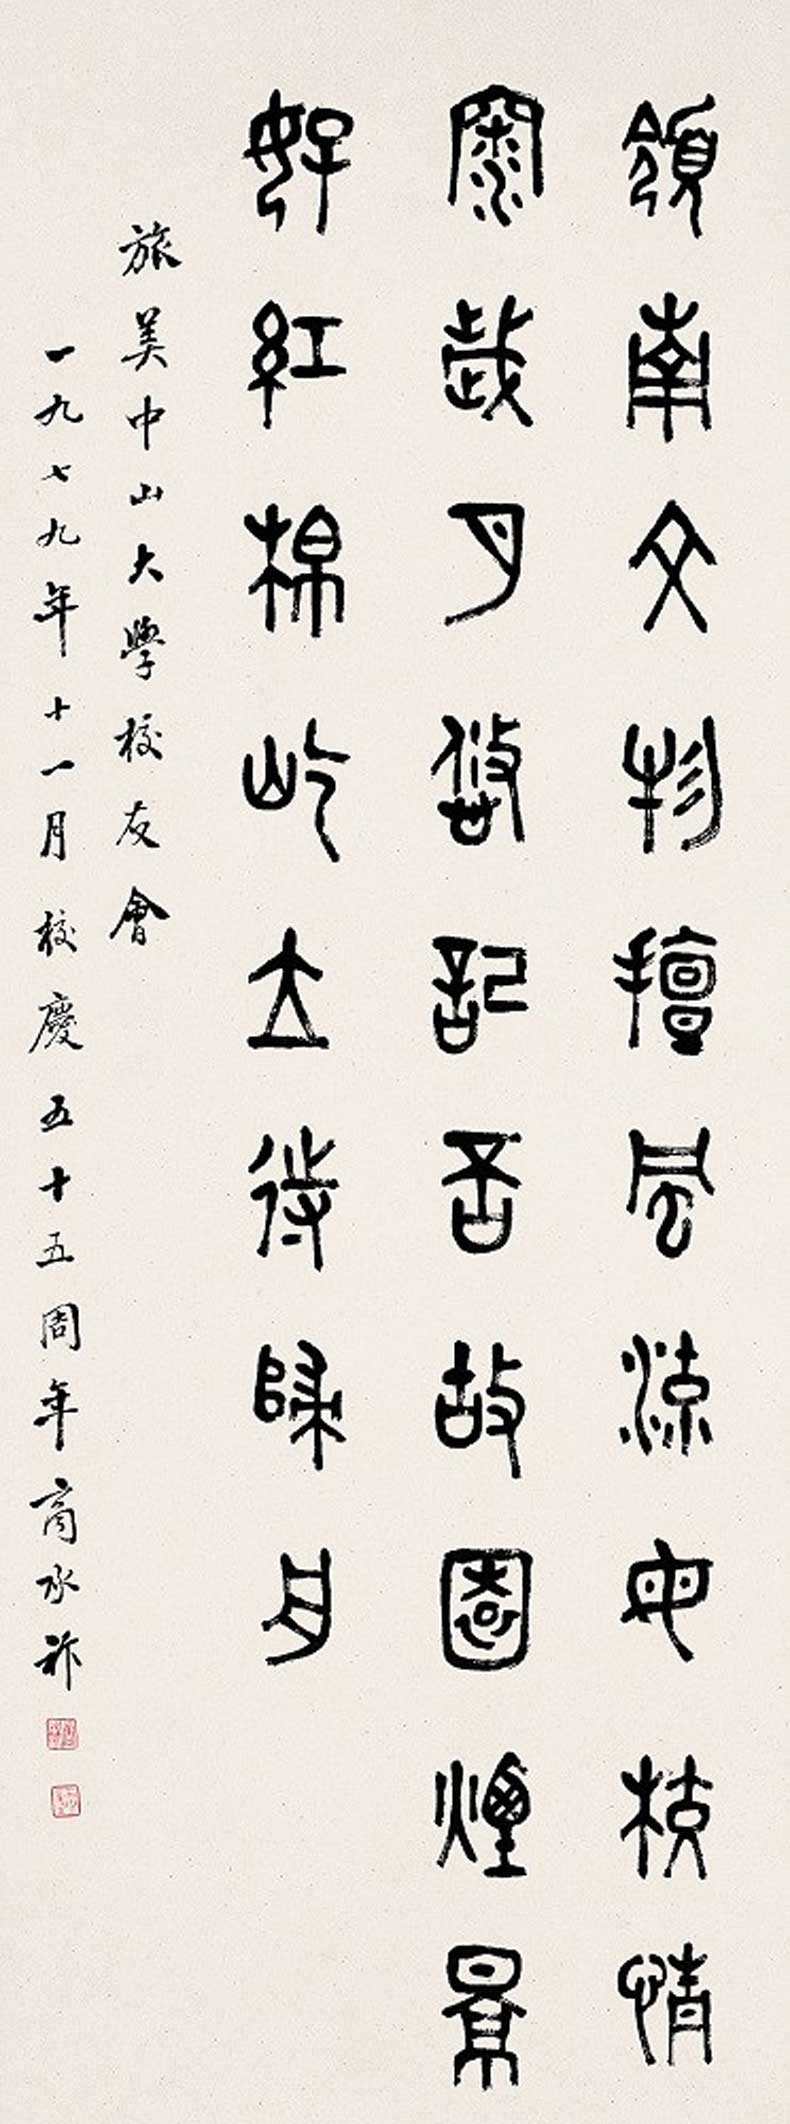 領南文物擅風流母校情
深歲月悠記否故園煙景
好紅棉屹立待歸舟
旅美中山大學校友會
一九七九年十一月校慶五十五周年商承祚